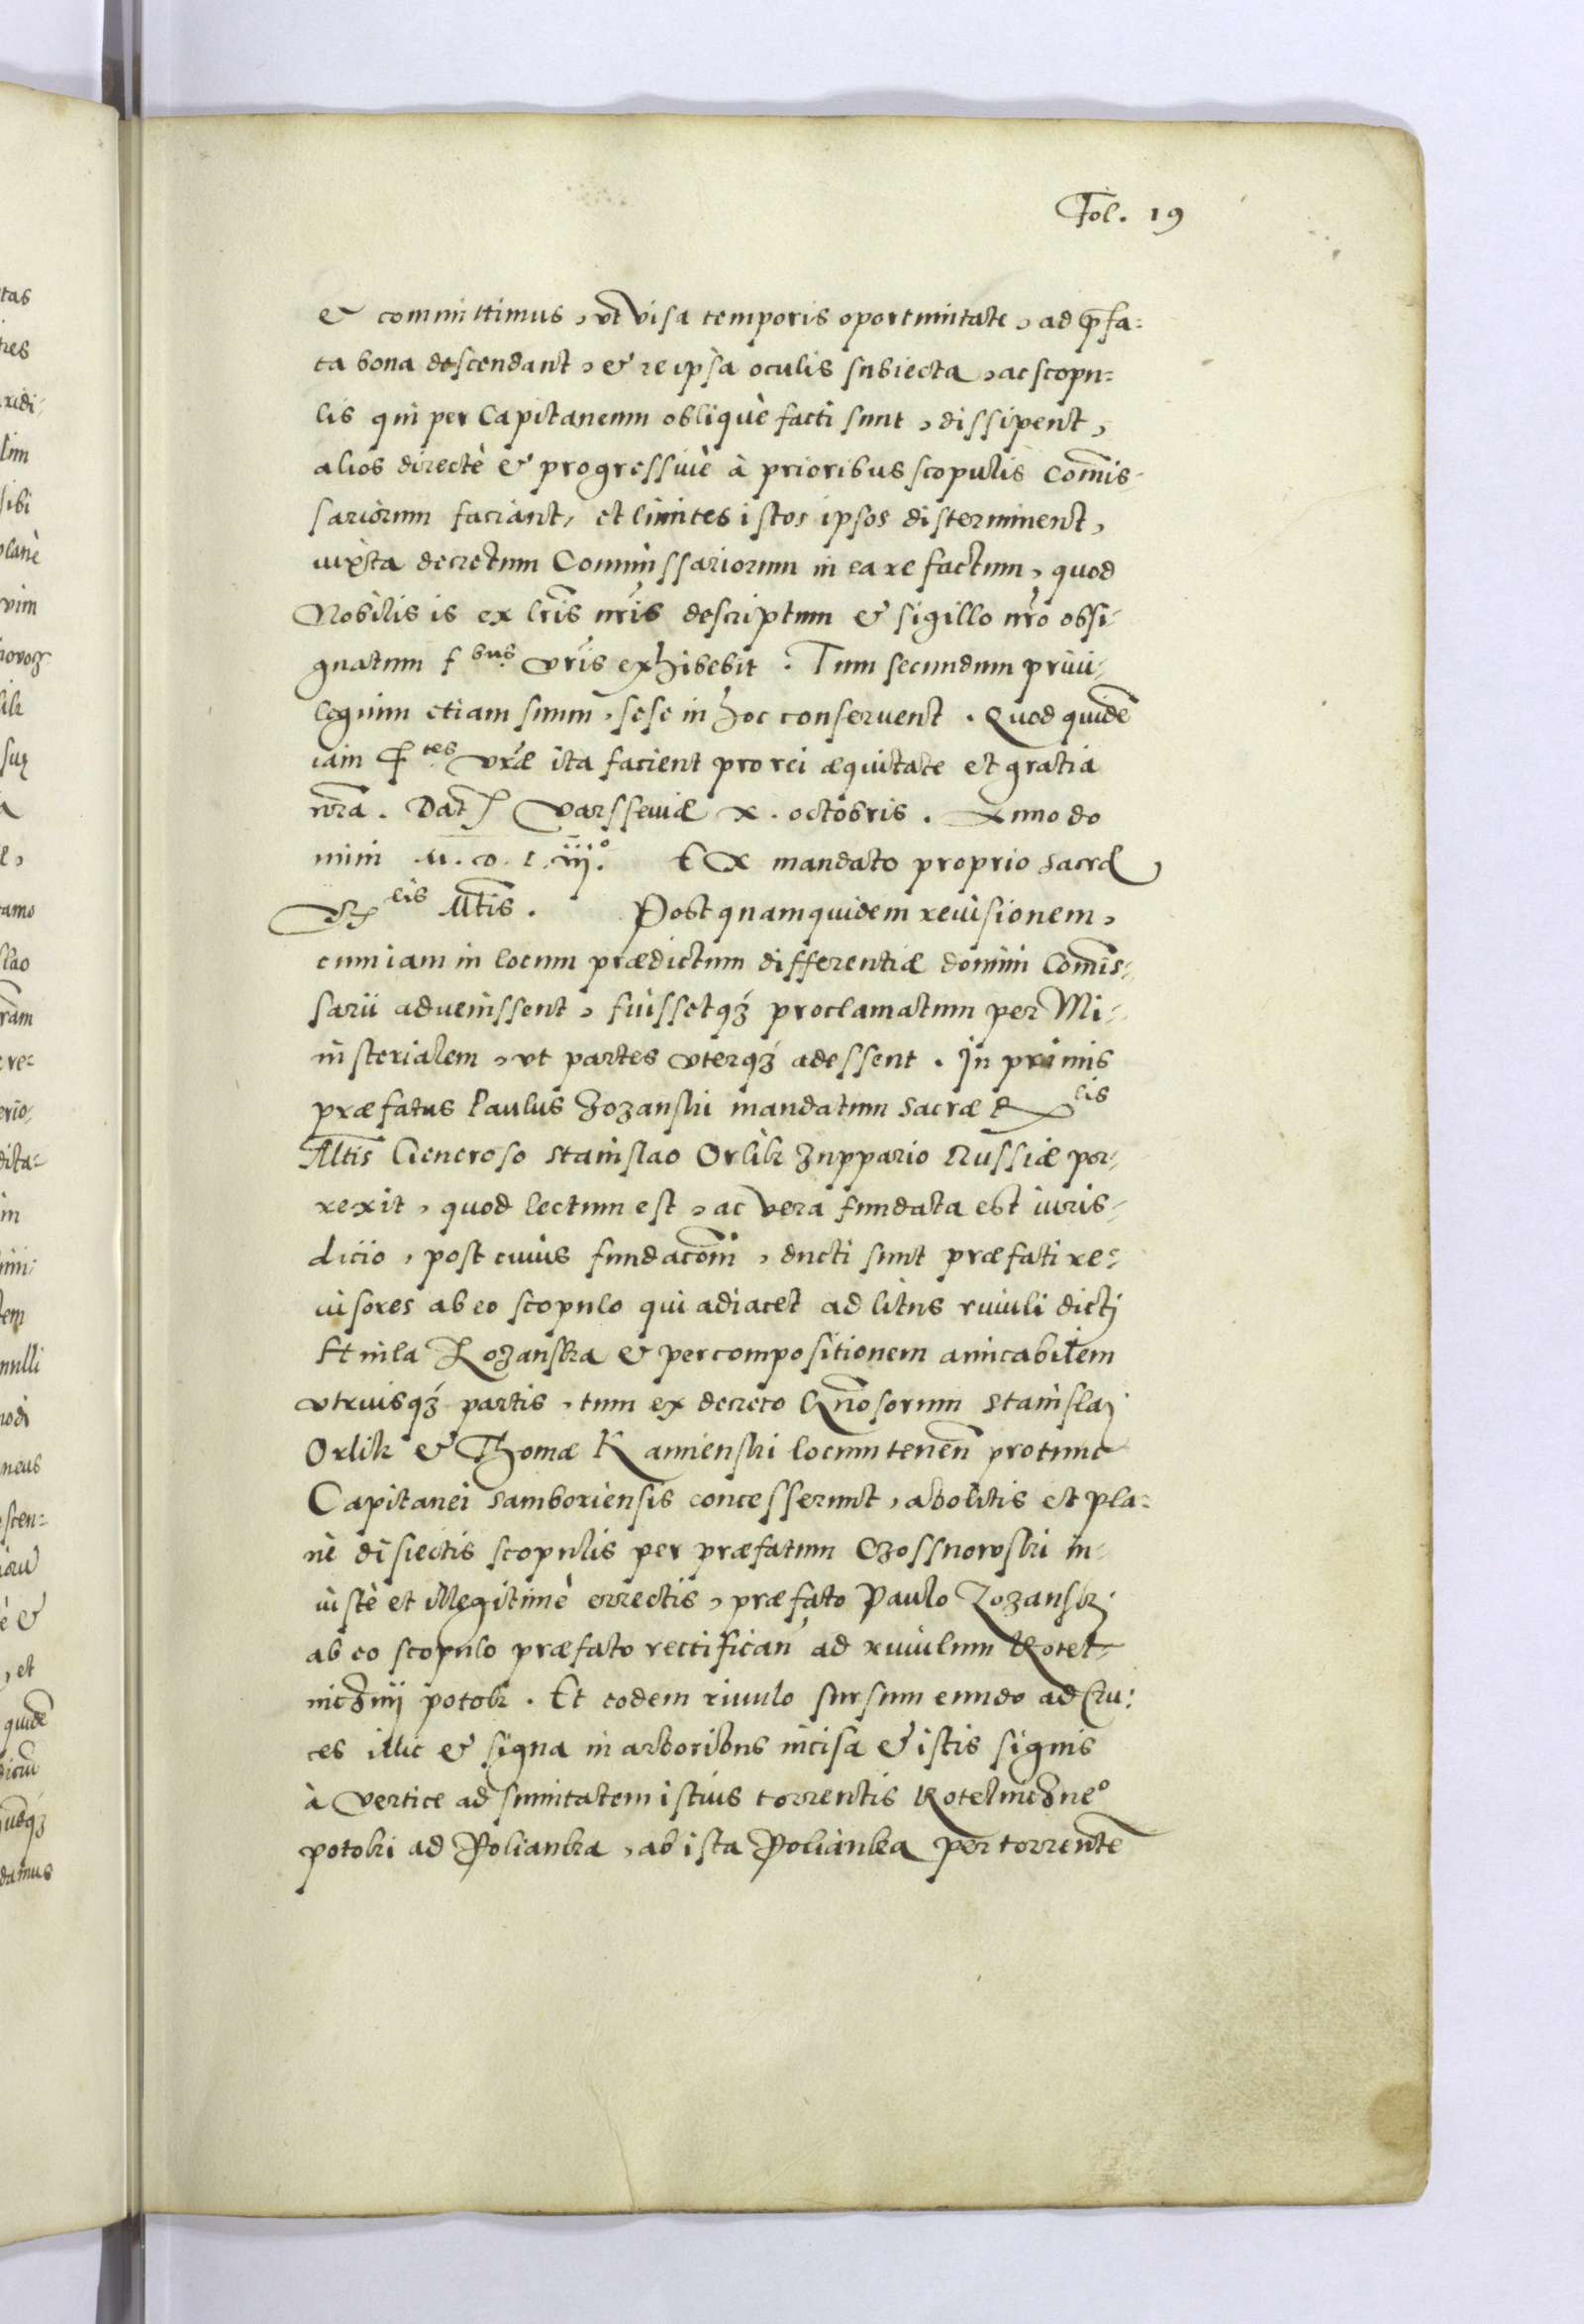 Fol. 19
& committimus, vt visa temporis oportunitate, ad p̄fa-
ta bona descendant, & re ipsa oculis subiecta, ac scopu-
lis qui per Capitaneum obliquè facti sunt, dissipent,
alios directè & progressiuè à prioribus scopulis Com̄is-
sariorum faciant, et limites istos ipsos disterminent,
iuxta decretum Commissariorum in ea re factum, quod
Nobilis is ex lr̄is nr̄is descriptum & sigillo nr̄o obsi-
gnatum f bus vr̄is exhibebit. Tum secundum priui-
legium etiam suum, sese in hoc conseruent. Quod quidē
iam f tes vr̄æ ita facient pro rei æquitate et gratia
nr̄a. Dat Varsseuiæ x. octobris. Anno do
mini M. D. L. iiij°. Ex mandato proprio Sacræ
R eis Mtis. Post quam quidem reuisionem,
cum iam in locum prædictum differentiæ domini Com̄is-
sarii aduenissent, fuissetqꝫ proclamatum per Mi-
nisterialem, vt partes vterqꝫ adessent. In primis
præfatus Paulus Lozanski mandatum Sacræ R eis
Mtis Generoso Stanislao Orlik Zuppario Russiæ por-
rexit, quod lectum est, ac vera fundata est iuris-
dicio, post cuius fundacōm, ducti sunt præfati re-
uisores ab eo scopulo qui adiacet ad litus riuuli dicti
Stnila Lozanska & per compositionem amicabilem
vtriusqꝫ partis, tum ex decreto Gn̄osorum Stanislai
Orlik & Thomæ Kamienski locum tenen̄ protunc
Capitanei Samboriensis concesserunt, abolitis et pla-
nè disiectis scopulis per præfatum Czossnowski in-
iustè et illegitimè errectis, præfato Paulo Lozanski
ab eo scopulo præfato rectifican ad riuulum Kotel-
niczny potok. Et eodem riuulo sursum eundo ad Cru-
ces illic & signa in arboribus incisa & istis signis
à vertice ad sumitatem istius torrentis Kotelniczne°
potoki ad Polianka, ab ista Polianka per torrentē